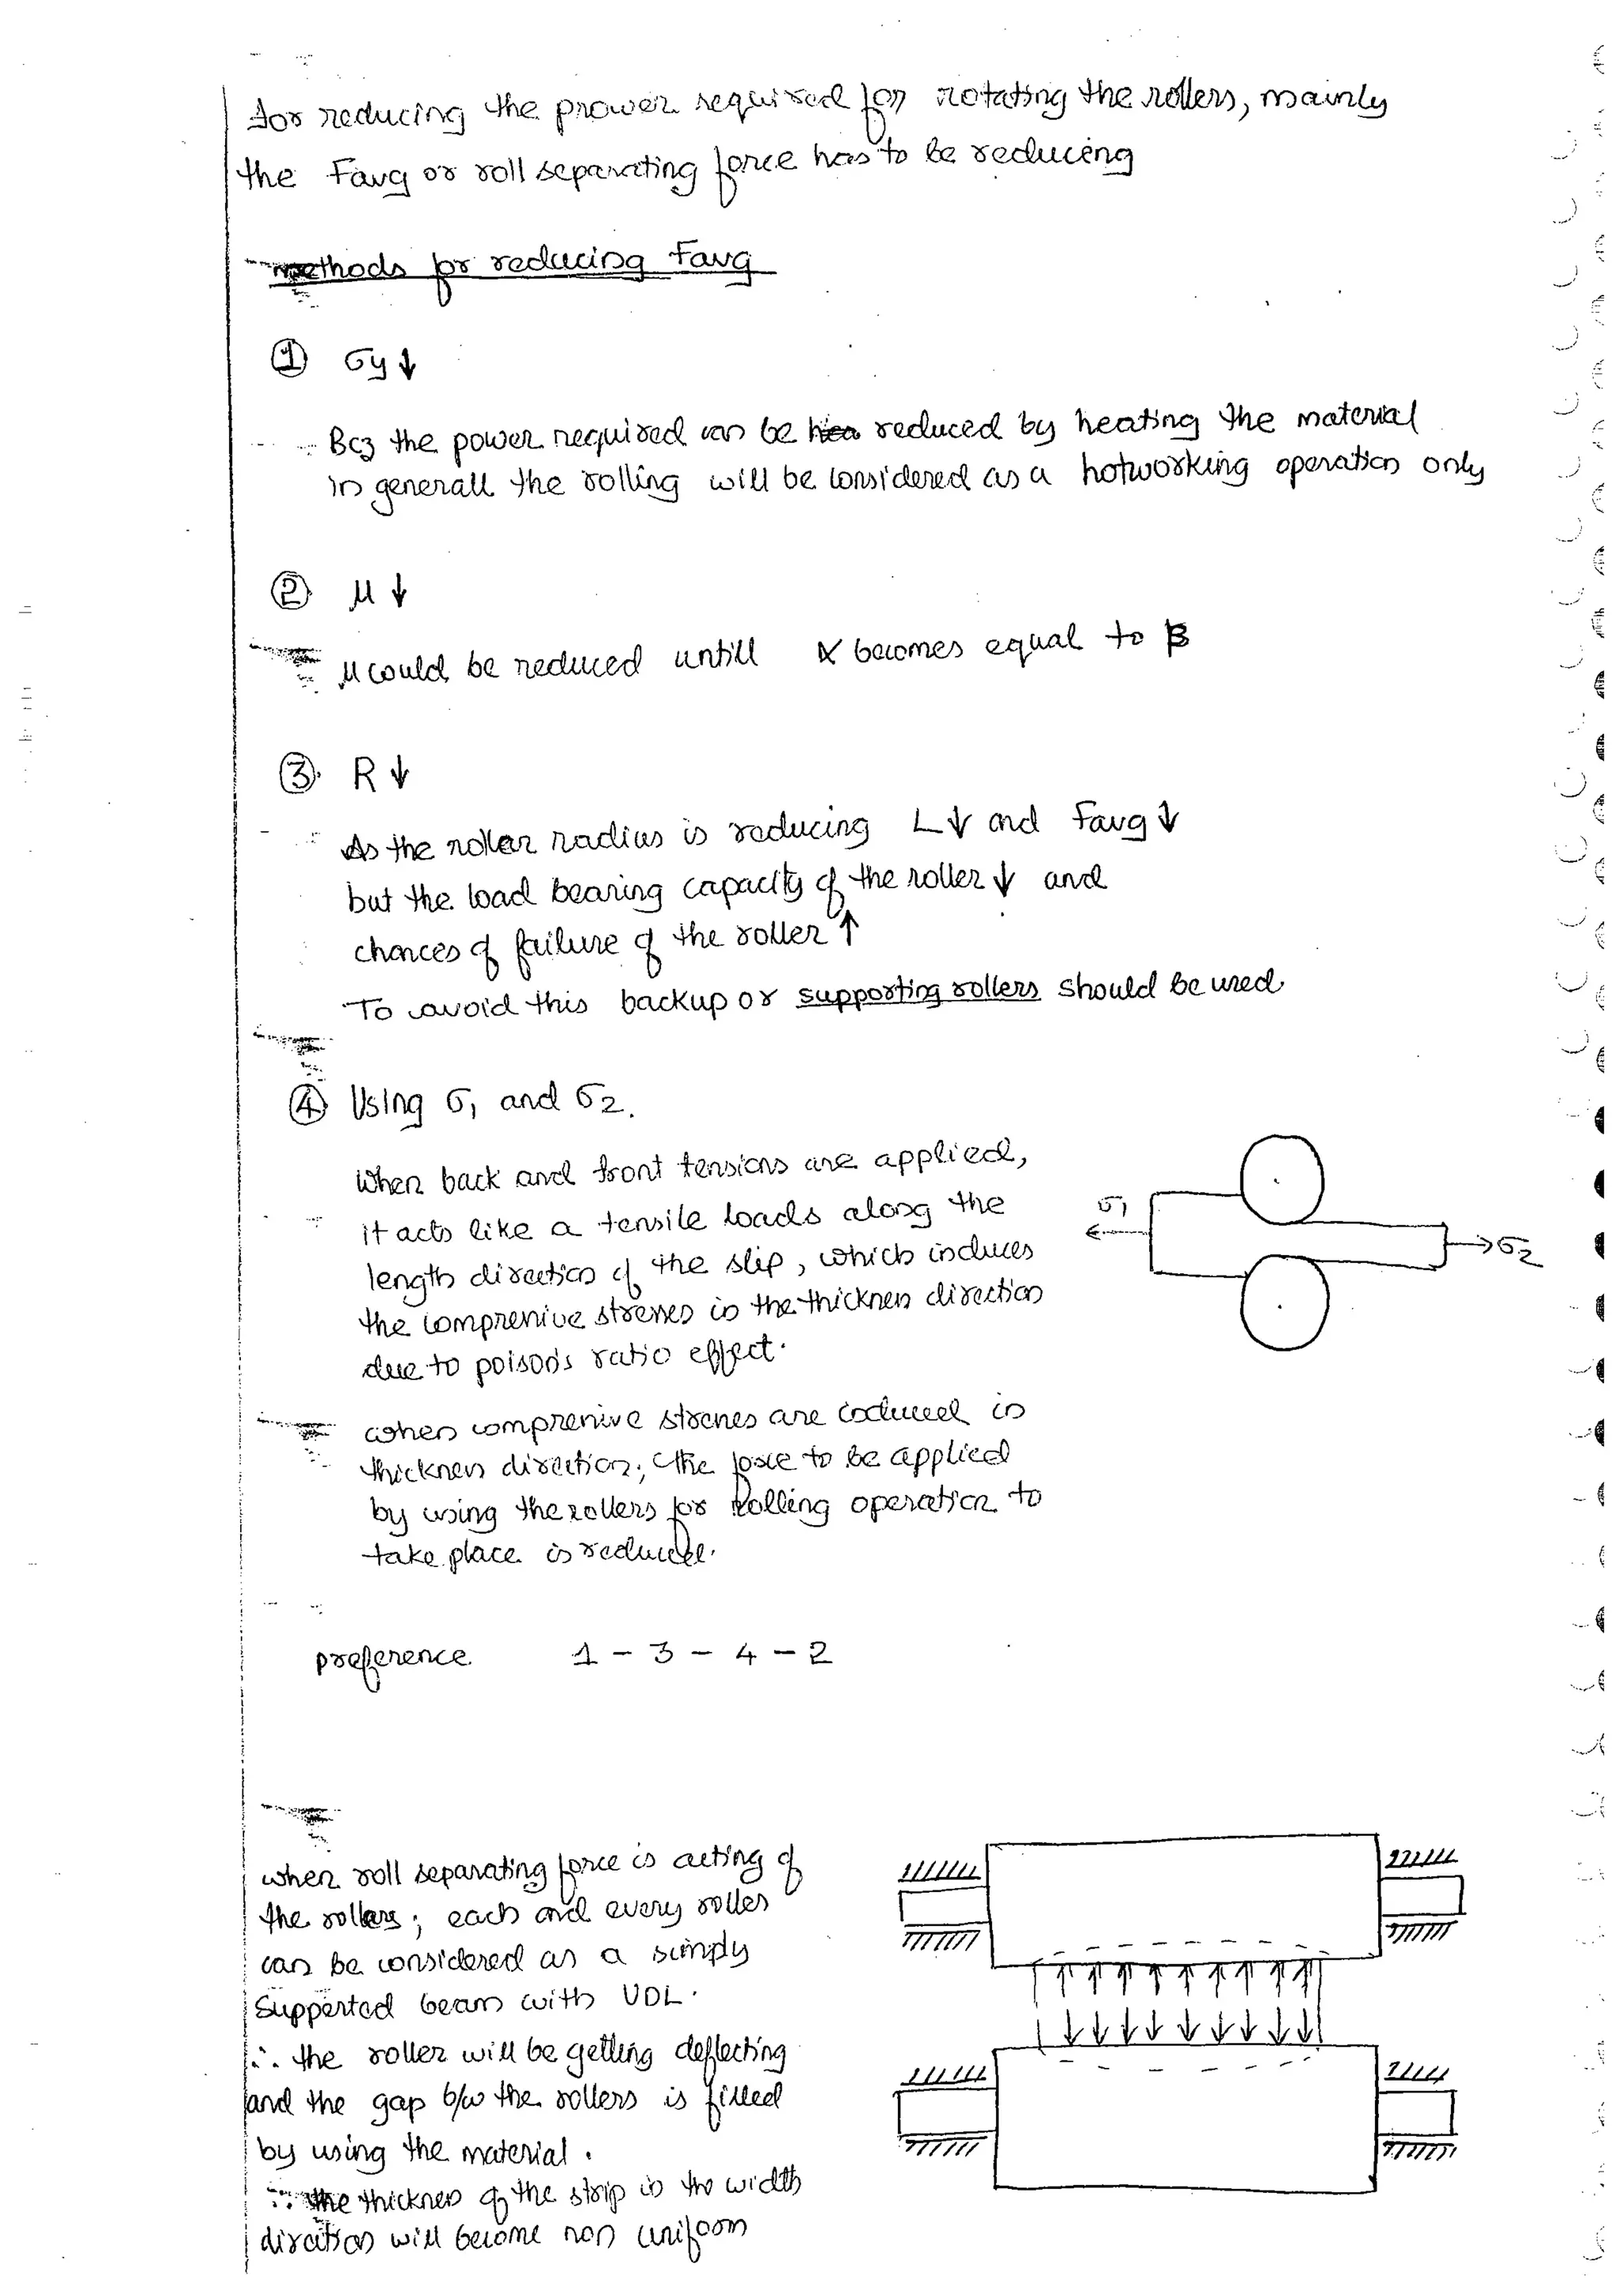 for reducing the prower required for rotating the rollers, mainly
the Favg or roll separating force has to be reducing
methods for reducing Favg
① σy↓
Bcz the power required can be reduced by heating the material
in generall the rolling will be considered as a hotworking operation only
② μ↓
μ could be reduced untill α becomes equal to β
③. R↓
As the roller radius is reducing L↓ and Favg↓
but the load bearing capacity of the roller ↓ and
chances of failure of the roller ↑
To avoid this backup or supporting rollers should be used.
④ Using σ1 and σ2.
When back and front tensions are applied,
it acts like a tensile loads along the
length direction of the slip, which induces
the compressive stresses in the thickness direction
due to poison's ratio effect.
σ1
σ2
when compressive stresses are induced in
thickness direction, the force to be applied
by using the rollers for Rolling operation to
take place is reduced.
preference 1 - 3 - 4 - 2
when roll separating force is acting of
the rollers; each and every roller
can be considered as a simply
supported beam with UDL.
∴ the roller will be getting deflecting
and the gap b/w the rollers is filled
by using the material.
∴ the thickness of the strip in the width
direction will become non uniform